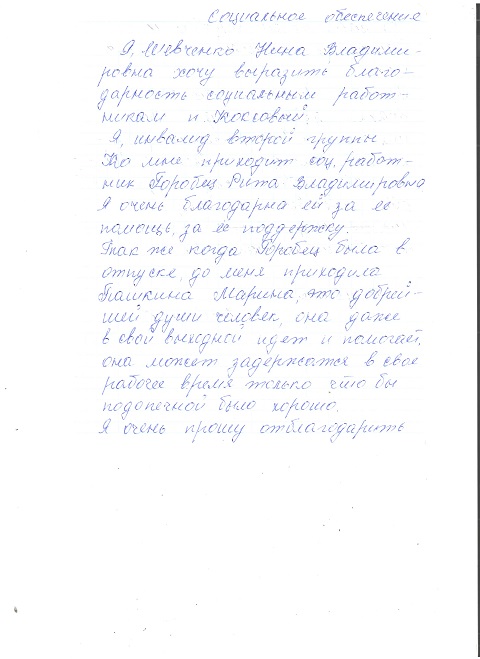 Социальное обеспечение
Я, Шевченко Нина Владими-
ровна хочу выразить благо-
дарность социальным работ-
никам п Коксовый.
Я, инвалид второй группы.
Ко мне приходит соц. работ-
ник Горобец Рита Владимировна
Я очень благодарна ей за ее
помощь, за ее поддержку.
Так же когда Горобец была в
отпуске, до меня приходила
Пашкина Марина, это добрей-
шей души человек, она даже
в свой выходной идет и помогает,
она может задержатся в свое
рабочее время только что бы
подопечной было хорошо.
Я очень прошу отблагодарить